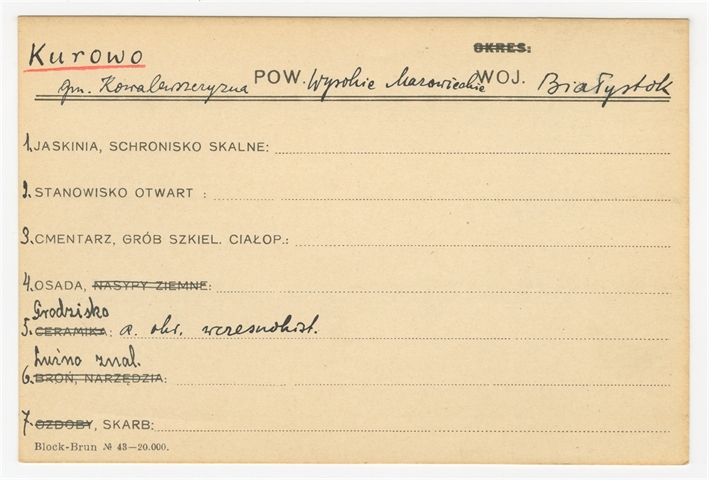 OKRES:
Kurowo
gm. Kowalewszczyzna POW. Wysokie Mazowieckie WOJ. Białystok
1. JASKINIA, SCHRONISKO SKALNE:
2. STANOWISKO OTWART :
3. CMENTARZ, GRÓB SZKIEL. CIAŁOP.:
4. OSADA, NASYPY ZIEMNE:
Grodzisko
5. CERAMIKA: a. okr. wczesnohist.
Luźno znal.
6. BROŃ, NARZĘDZIA:
7. OZDOBY, SKARB:
Block-Brun № 43—20.000.